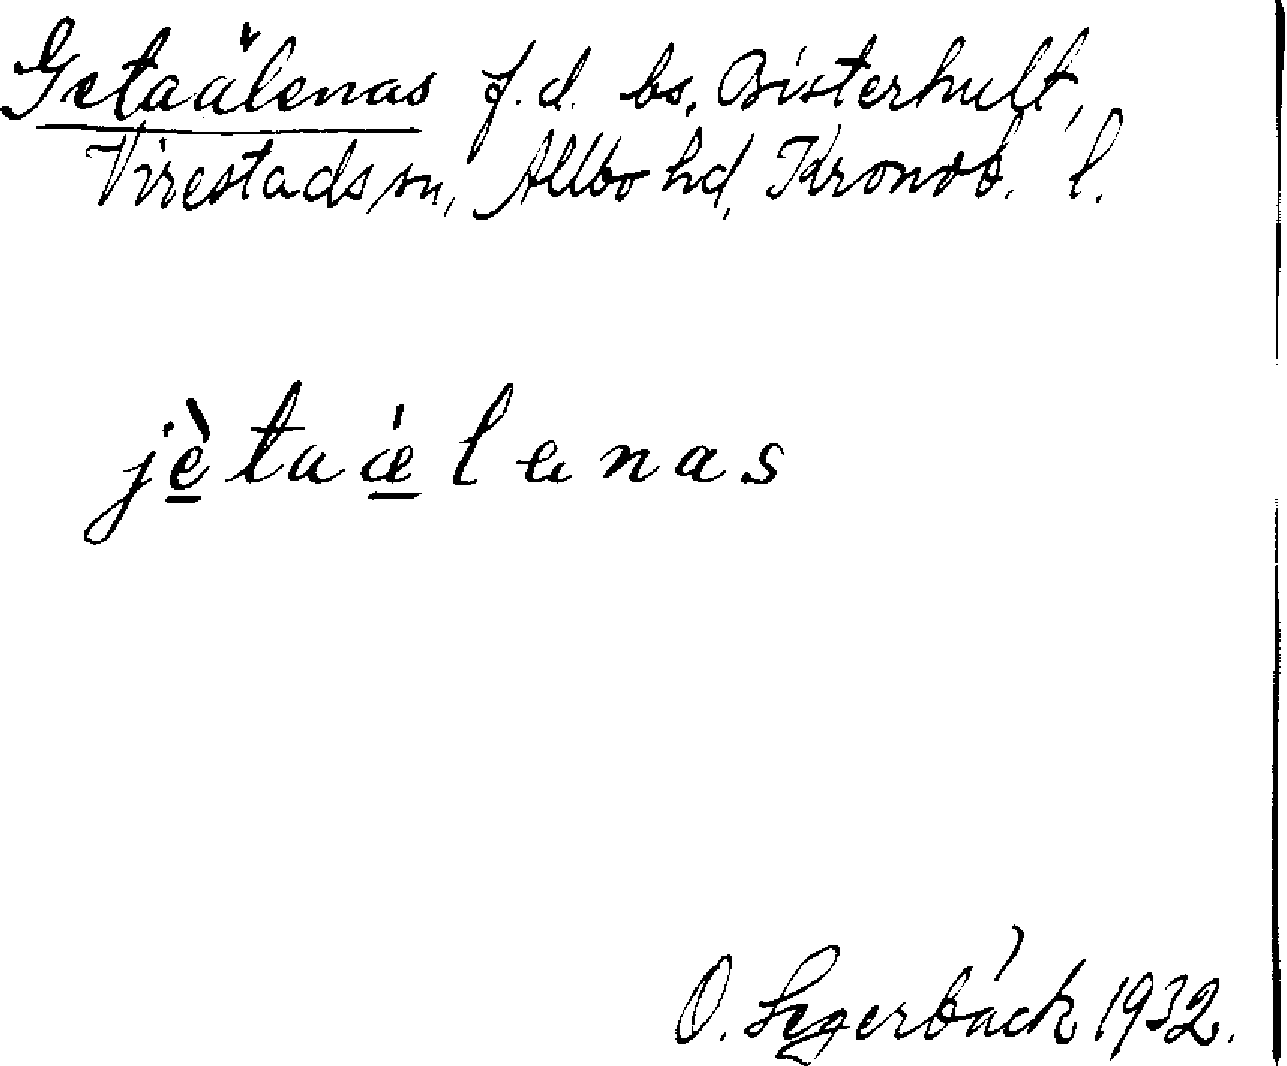 Getaälenas f.d. bs, Bisterhult,
Virestads sn, Allbo hd, Kronob. l.
jètaǽlenas
O. Segerbäck 1932.